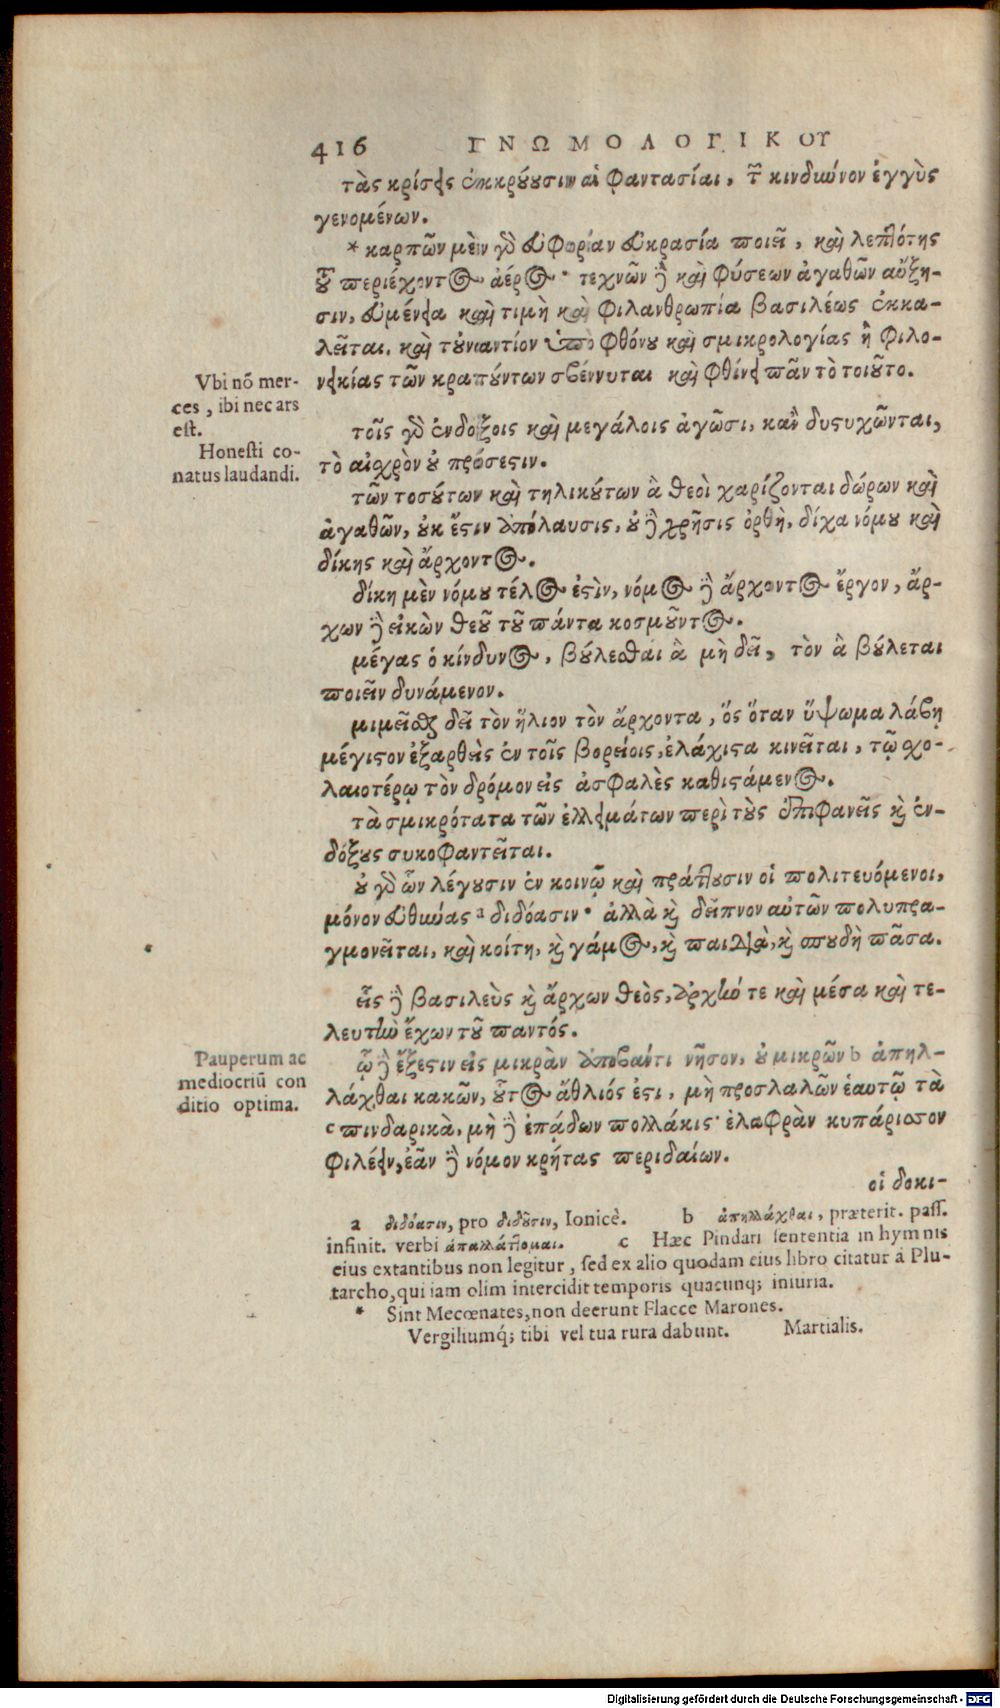 416 ΓΝΩΜΟΛΟΓΙΚΟΥ
τὰς κρίσεις ἐκκρούουσιν αἱ φαντασίαι, τῶν κινδύνον ἐγγὺς
γενομένων.
* καρπῶν μὲν γὸ εὐφορίαν εὐκρασία ποιεῖ, καὶ λεπτότης
τοῦ περιέχοντος ἀέρος· τεχνῶν δὲ καὶ φύσεων ἀγαθῶν αὔξη-
σιν, εὐμένεια καὶ τιμὴ καὶ φιλανθρωπία βασιλέως ἐκκα-
λεῖται. καὶ τοὐναντίον ὑπὸ φθόνου καὶ σμικρολογίας ἢ φιλο-
νεικίας τῶν κρατούντων σβέννυται καὶ φθίνει πᾶν τὸ τοιοῦτο.
Vbi nō mer-
ces, ibi nec ars
est.
τοῖς γὸ ἐνδόξοις καὶ μεγάλοις ἀγῶσι, κἂν δυστυχῶνται,
τὸ αἰσχρὸν οὐ πρόσεστιν.
Honesti co-
natus laudandi.
τῶν τοσούτων καὶ τηλικούτων ἃ θεοὶ χαρίζονται δώρων καὶ
ἀγαθῶν, οὐκ ἔστιν ἀπόλαυσις, οὐ δὲ χρῆσις ὀρθὴ, δίχα νόμου καὶ
δίκης καὶ ἄρχοντος.
δίκη μὲν νόμου τέλος ἐστὶν, νόμος δὲ ἄρχοντος ἔργον, ἄρ-
χων δὲ εἰκὼν θεοῦ τοῦ πάντα κοσμοῦντος.
μέγας ὁ κίνδυνος, βούλεσθαι ἃ μὴ δεῖ, τὸν ἃ βούλεται
ποιεῖν δυνάμενον.
μιμεῖσθαι δεῖ τὸν ἥλιον τὸν ἄρχοντα, ὅς ὅταν ὕψωμα λάβῃ
μέγιστον ἐξαρθεὶς ἐν τοῖς βορείοις, ἐλάχιστα κινεῖται, τῷ σχο-
λαιοτέρῳ τὸν δρόμον εἰς ἀσφαλὲς καθιστάμενος.
τὰ σμικρότατα τῶν ἐλλειμάτων περὶ τοὺς ἐπιφανεῖς καὶ ἐν-
δόξους συκοφαντεῖται.
οὐ γὸ ὧν λέγουσιν ἐν κοινῷ καὶ πράττουσιν οἱ πολιτευόμενοι,
μόνον εὐθύνας a διδόασιν· ἀλλὰ καὶ δεῖπνον αὐτῶν πολυπρα-
γμονεῖται, καὶ κοίτη, καὶ γάμος, καὶ παιδιὰ, καὶ σπουδὴ πᾶσα.
εἷς δὲ βασιλεὺς καὶ ἄρχων θεὸς, ἀρχήν τε καὶ μέσα καὶ τε-
λευτὴν ἔχων τοῦ παντός.
Pauperum ac
mediocriū con
ditio optima.
ᾧ δὲ ἔξεστιν εἰς μικρὰν ἀποβάντι νῆσον, οὐ μικρῶν b ἀπηλ-
λάχθαι κακῶν, οὗτος ἄθλιός ἐστι, μὴ προσλαλῶν ἑαυτῷ τὰ
c πινδαρικὰ, μὴ δὲ ἐπᾴδων πολλάκις· ἐλαφρὰν κυπάρισσον
φιλέειν, ἐᾶν δὲ νόμον κρήτας περιδαίων.
οἱ δοκι-
a διδόασιν, pro διδοῦσιν, Ionicè. b ἀπηλλάχθαι, præterit. pass.
infinit. verbi ἀπαλλάττομαι. c Hæc Pindari sententia in hymnis
eius extantibus non legitur, sed ex alio quodam eius libro citatur à Plu-
tarcho, qui iam olim intercidit temporis quacunq; iniuria.
* Sint Mecœnates, non deerunt Flacce Marones.
Vergiliumq́; tibi vel tua rura dabunt. Martialis.
Digitalisierung gefördert durch die Deutsche Forschungsgemeinschaft - DFG